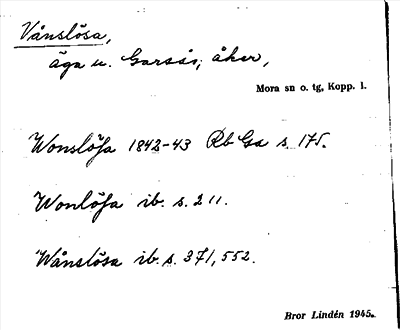 Vånslösa,
äga u. Garsås; åker,
Mora sn o. tg, Kopp. l.
Wonslösa 1842-43 Rb Ga s. 175.
Wonlösa ib. s. 211.
Wånslösa ib. s. 371, 552.
Bror Lindén 1945.